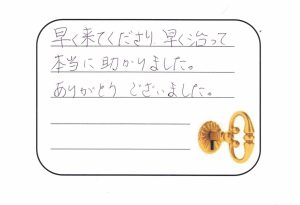 早く来てくださり 早く治って
本当に助かりました。
ありがとうございました。